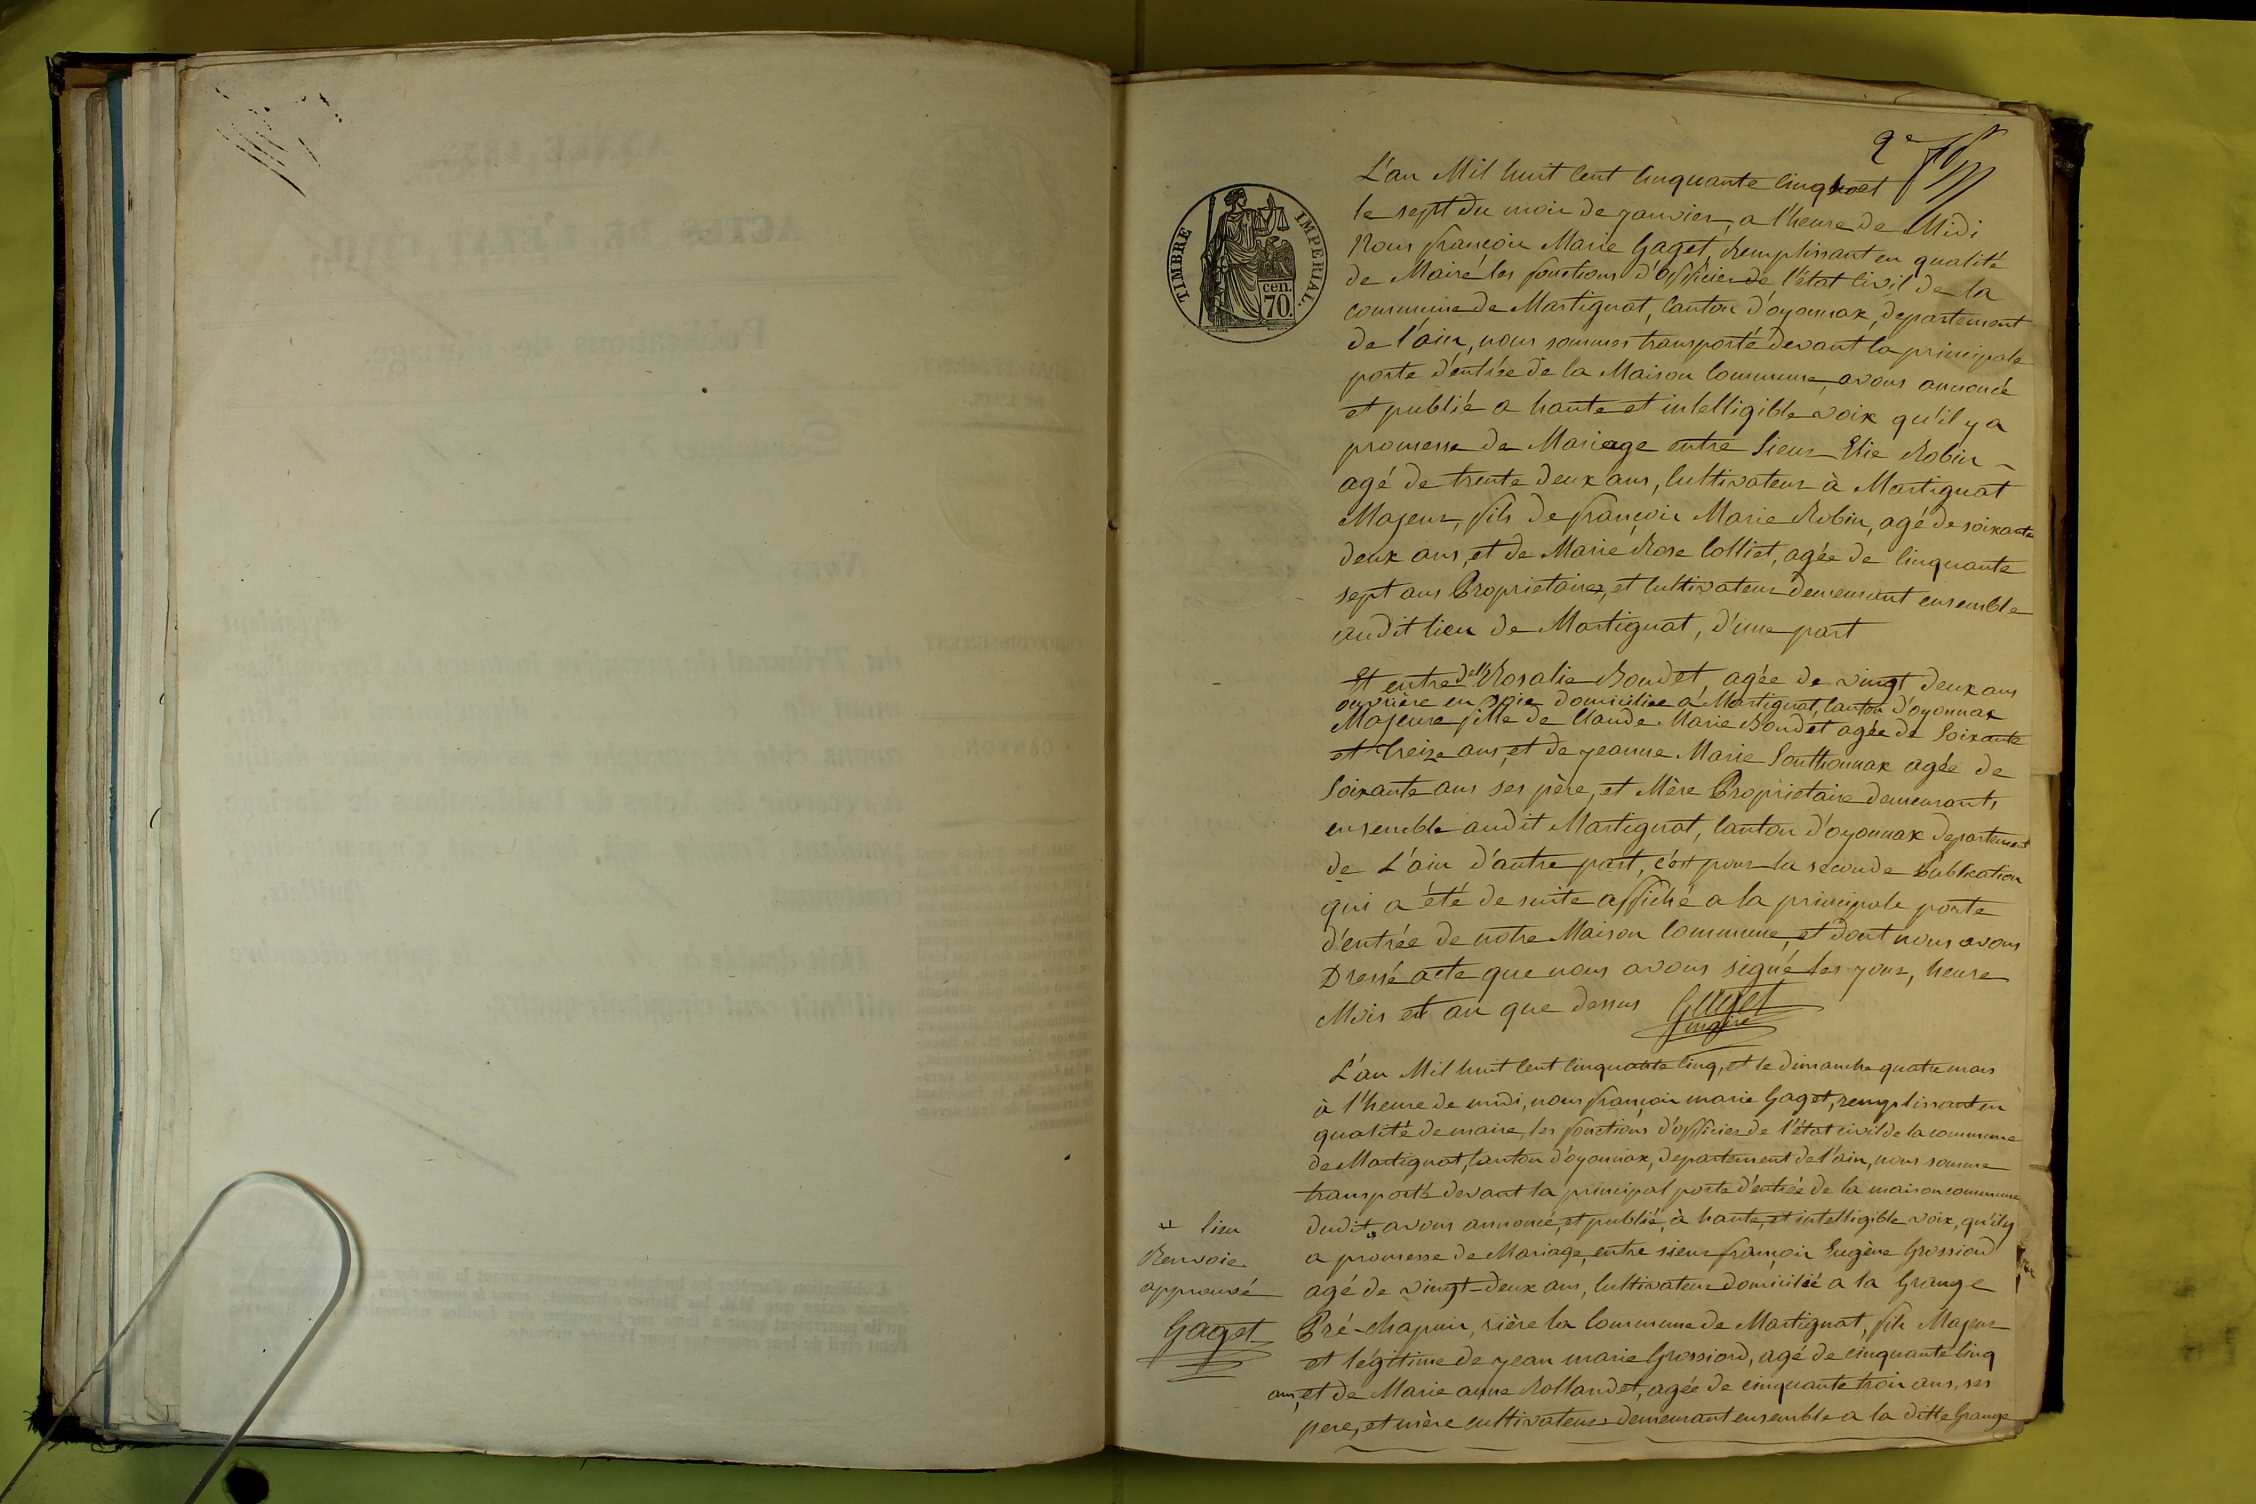 2e
TIMBRE IMPERIAL.
cen.
70.
L'an Mil huit Cent Cinquante Cinq et
le sept du mois de janvier, a l'heure de Midi
Nous françois Marie Gaget, Remplissant en qualité
de Maire les fonctions d'Officier de l'état Civil de la
commune de Martignat, Canton d'oyonnax, departement
de l'ain, nous sommes transporté devant la principale
porte d'entrée de la Maison Commune, avons annoncé
et publié a haute et intelligible voix qu'il y a
promesse de Mariage entre Sieur Elie Robin
agé de trente deux ans, Cultivateur à Martignat
Majeur, fils de françois Marie Robin, agé de soixante
deux ans, et de Marie Rose Colliet, agée de Cinquante
sept ans Proprietaires, et Cultivateur demeurant ensemble
audit lieu de Martignat, d'une part
Et entre delle Rosalie Bondet, agée de vingt deux ans
ouvrière en soie domiciliée a Martignat, Canton d'oyonnax
Majeure fille de Claude Marie Bondet agée de Soixante
et treize ans, et de jeanne Marie Southonnax agée de
Soixante ans ses père, et Mère Proprietaire demeurants
ensemble audit Martignat, Canton d'oyonnax departement
de L'ain d'autre part, c'est pour la seconde Publication
qui a été de suite affiché a la principale porte
d'entrée de notre Maison Commune, et dont nous avons
Dressé acte que nous avons signé les jour, heure
Mois et an que dessus Gaget
maire
L'an Mil huit Cent Cinquante Cinq, et le Dimanche quatre mars
à l'heure de midi, nous françois marie Gaget, remplissant en
qualité de maire, les fonctions d'officier de l'état civil de la commune
de Martignat, Canton d'oyonnax, departement de l'ain, nous somme
transporté devant la principal porte d'entrée de la maison commune
dudit avons annoncé, et publié, à haute, et intelligible voix, qu'il y
a promesse de Mariage, entre sieur françois Eugène Grossiord
agé de vingt-deux ans, Cultivateur domicilié a la Grange
Pré-Chapuis, rière la Commune de Martignat, fils Majeur
et légitime de jean marie Grossiord, agé de cinquante Cinq
ans, et de Marie anne Rollandet, agée de cinquante trois ans, ses
pere, et mère cultivateurs demeurant ensemble a la ditte Grange
lieu
Renvoie
approuvé
Gaget